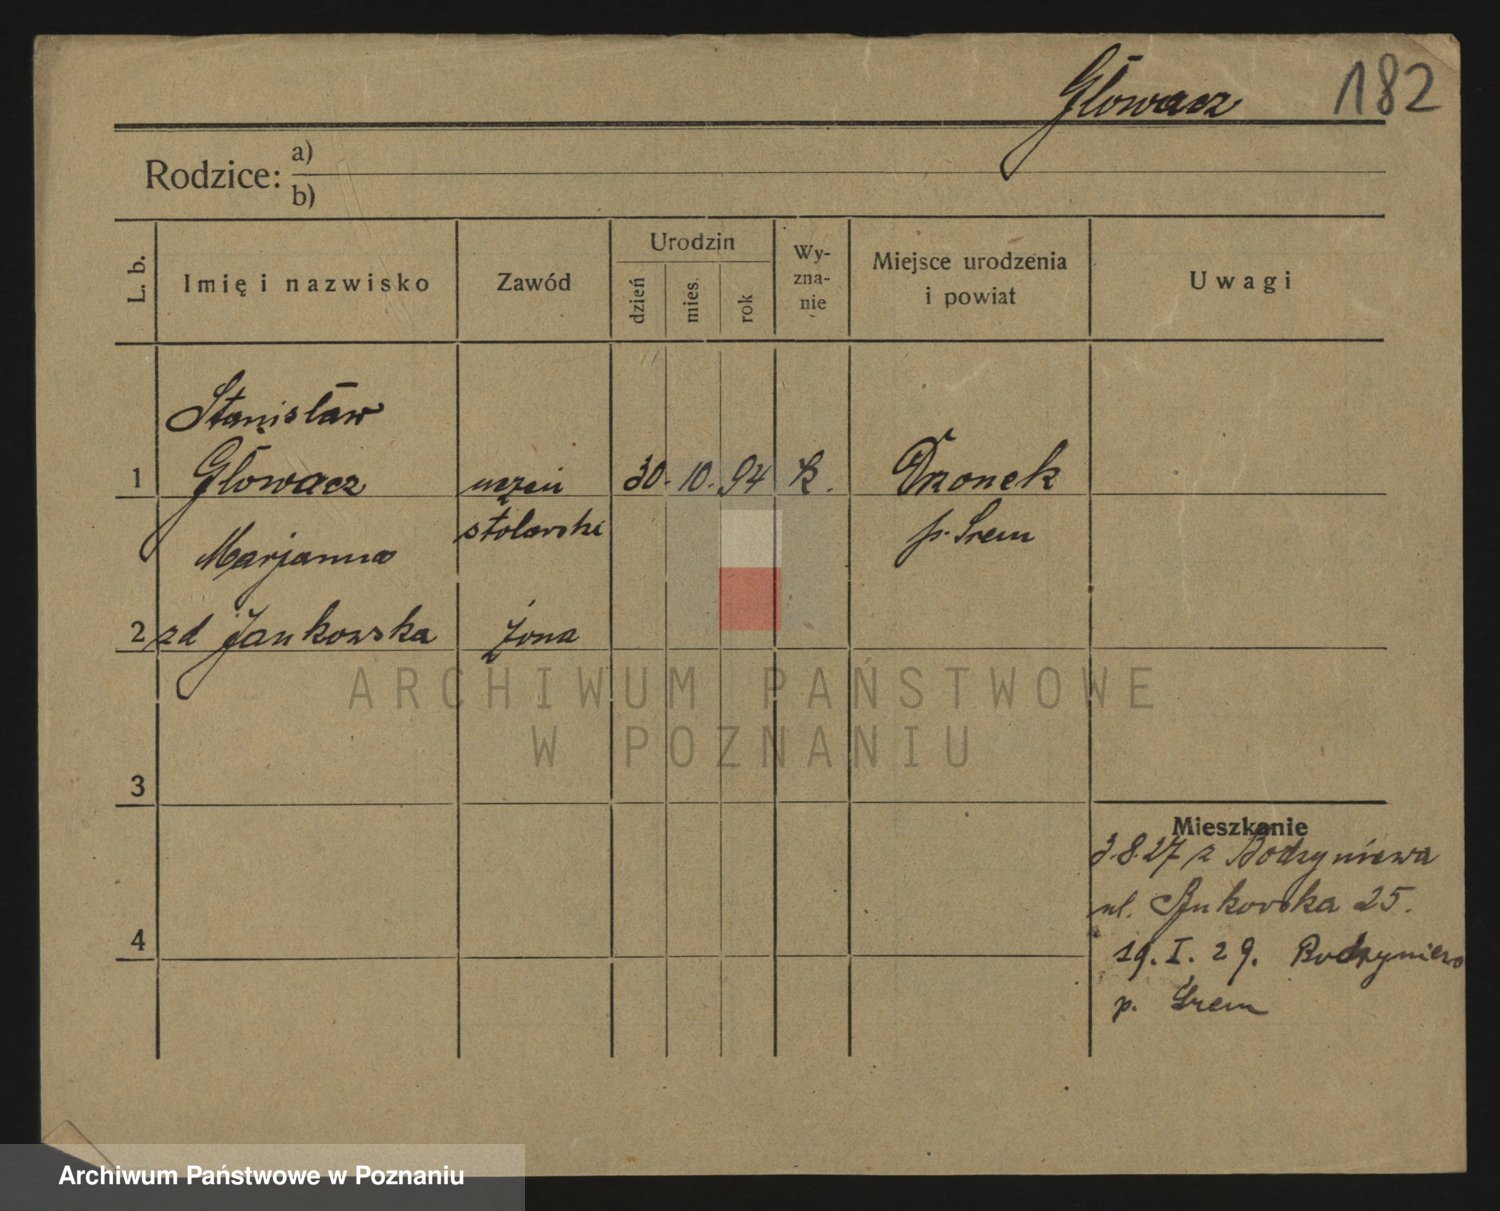 Głowacz 182
Rodzice: a)
b)
L. b. Imię i nazwisko Zawód Urodzin dzień mies. rok Wy-zna-nie Miejsce urodzenia i powiat Uwagi
Stanisław
1 Głowacz uczeń 30. 10. 94 k. Dronek
stolarski p. Śrem
Marjanna
2 zd Jankowska żona
ARCHIWUM PAŃSTWOWE
W POZNANIU
3
Mieszkanie
3.8.27 z Bodzyniewa
ul. Bukowska 25.
4
19. I. 29. Bodzyniewo
p. Śrem
Archiwum Państwowe w Poznaniu